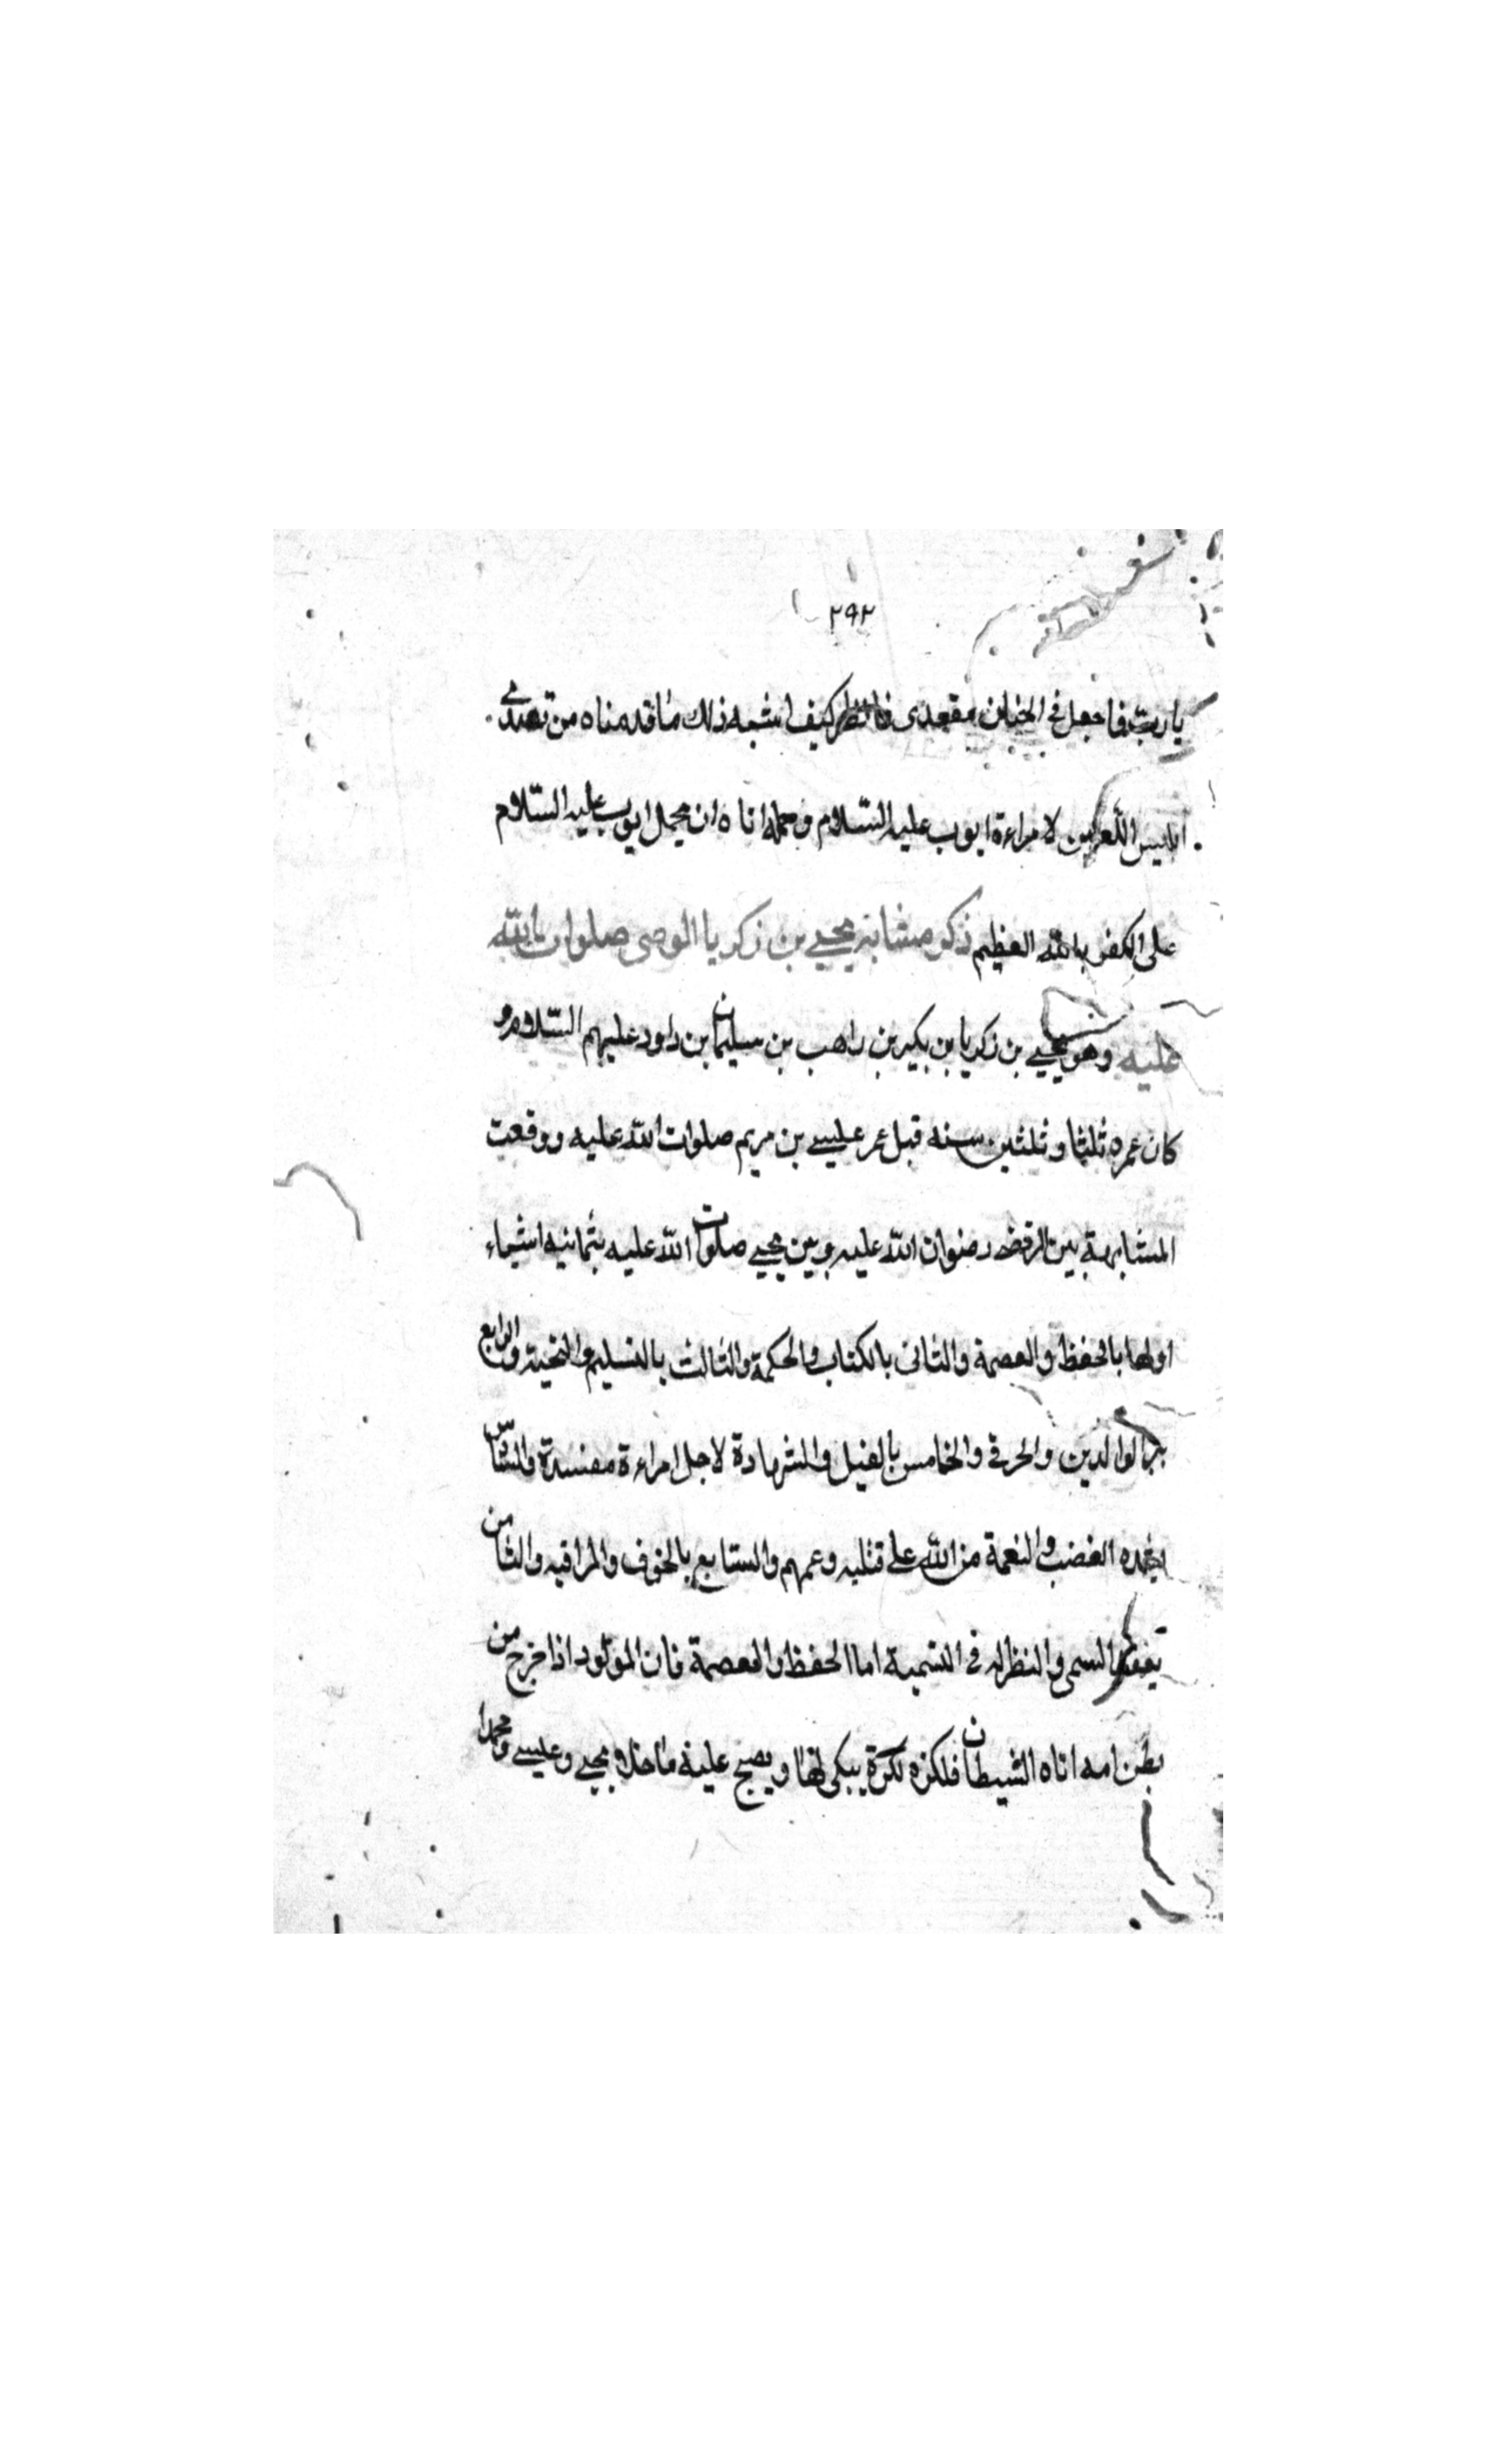 ٢٩٢
يا ربّ فاجعل في الجنان مقعدى فانظر كيف اشبه ذلك ما قدمناه من تصدى
ابليس اللعين لامراءة ايوب عليه السّلام وحمله اناه ان يحمل ايوب عليه السّلام
على الكفر بالله العظيم ذكر مشابه يحيى بن زكريا الوصى صلوات الله
عليه وهو يحيى بن زكريا بن بكير بن راهب بن سليمان بن داود عليهم السّلام و
كان عمره ثلثا وثلثين سنه قبل عمر عيسى بن مريم صلوات الله عليه ووقعت
المشابهة بين المرتضى رضوان الله عليه وبين يحيى صلوات الله عليه بثمانيه اشياء
اولها بالحفظ والعصمة والثانى بالكتاب والحكمة والثالث بالتسليم والتحية والرابع
ببر الوالدين والخامس بالقتل والشهادة لاجل امراءة مفسدة والسادس
الغضب والنقمة من الله على قتليه وعمهم والسابع بالخوف والمراقبه والثامن
السمى والنظر له في التسمية اما الحفظ والعصمة فان المولود اذا خرج من
بطن امه اتاه الشيطان فلكزه لكزة يبكى لها ويصيح عليه ما خلا يحيى وعيسى ومحمدا